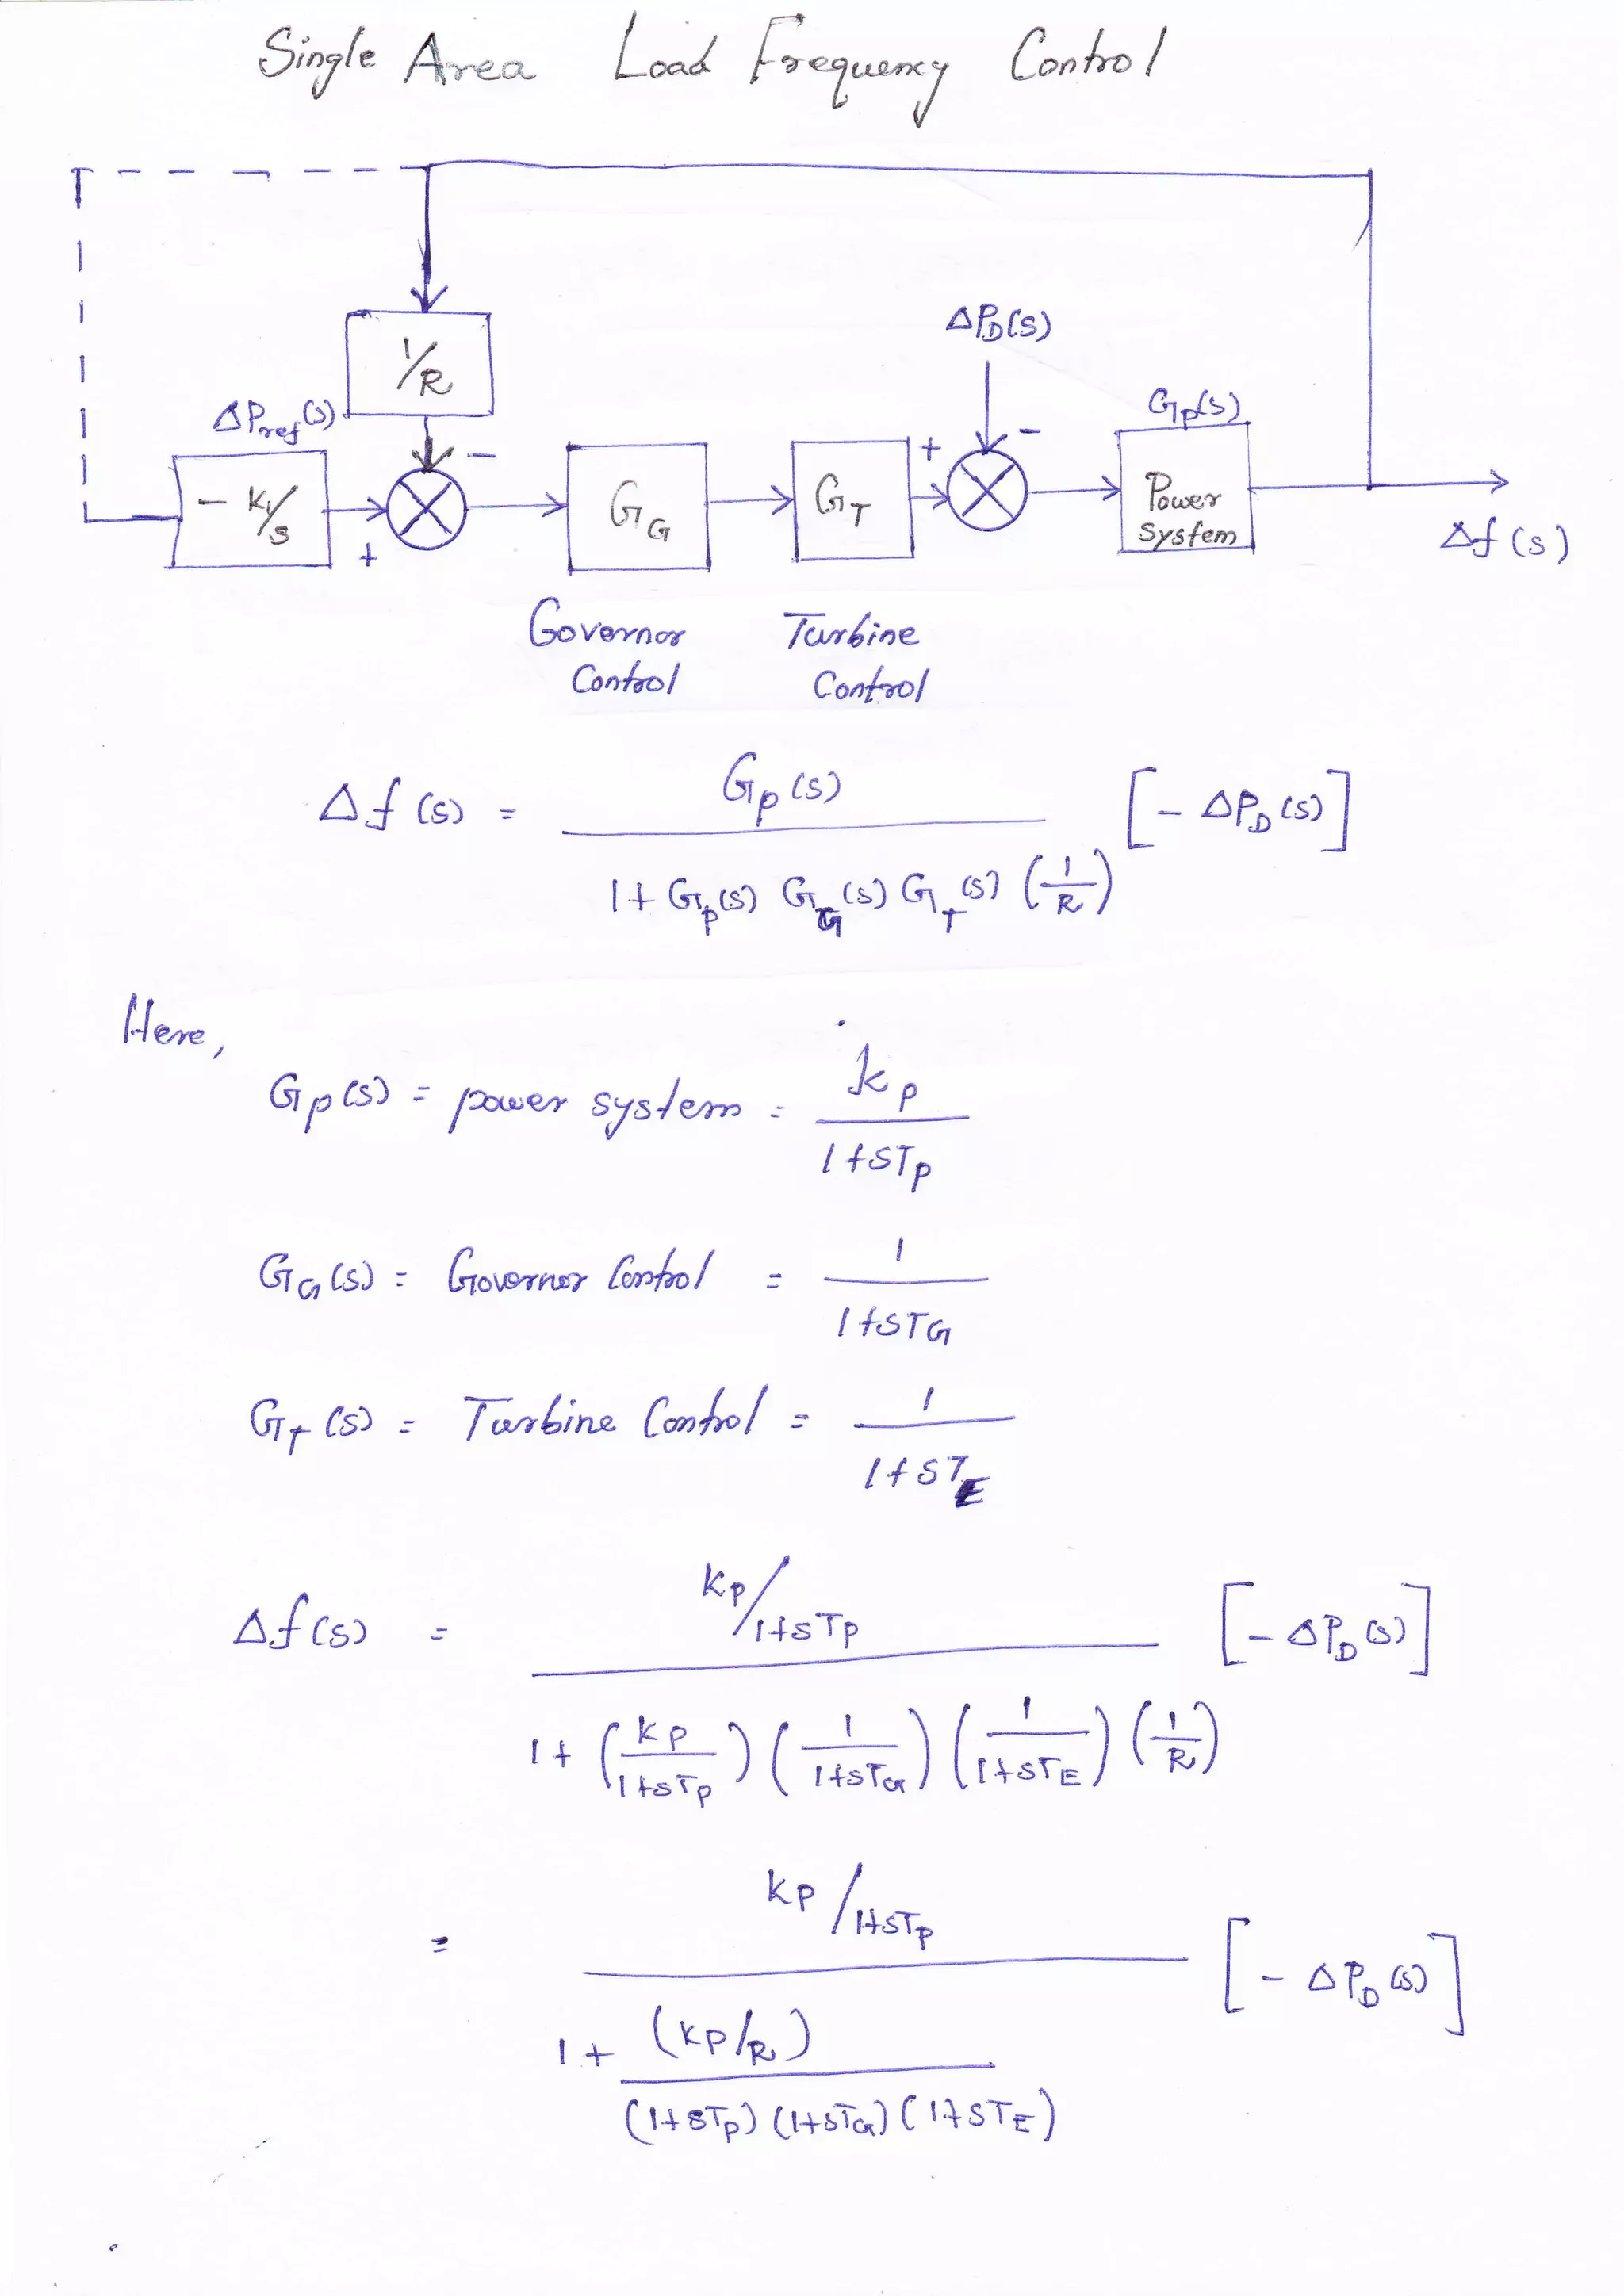 Single Area Load Frequency Control
ΔP_D(s)
1/R
G_p(s)
ΔP_ref(s)
−
+
−
− Ki/s
G_G
G_T
Power
system
+
Δf(s)
Governor
Control
Turbine
Control
Δf(s) = G_p(s) / (1 + G_p(s) G_G(s) G_T(s) (1/R)) [− ΔP_D(s)]
Here,
G_p(s) = power system = k_p / (1+sT_p)
G_G(s) = Governor Control = 1 / (1+sT_G)
G_T(s) = Turbine Control = 1 / (1+sT_E)
Δf(s) = (k_p/1+sT_p) / (1 + (k_p/(1+sT_p)) (1/(1+sT_G)) (1/(1+sT_E)) (1/R)) [− ΔP_D(s)]
= (k_p/1+sT_p) / (1 + (k_p/R) / ((1+sT_p)(1+sT_G)(1+sT_E))) [− ΔP_D(s)]